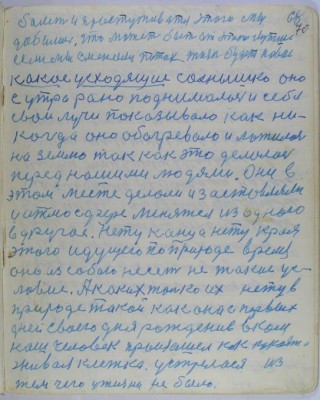 70
болит и преступника это мы
добились. Это может быть от этого лучше
если мы сменим так жизнь будет новое
какое уходящие солнышко оно
с утра рано поднималося и себя
свои лучи показывало как ни-
когда оно обогревало и ложилося
на землю так как это делалося
перед нашими людями. Они в
этом месте делали и заставляли
атмосфере менятся из одного
в другая. Нету конца нету края
этого идущего по природе время
оно из собою несет не такие ус-
ловие. А каких только их нету в
природе такой как она с первых
дней своего дня рождения в ком
наш человек
живая клетка. устрелася из
тем чего у жизни не было.